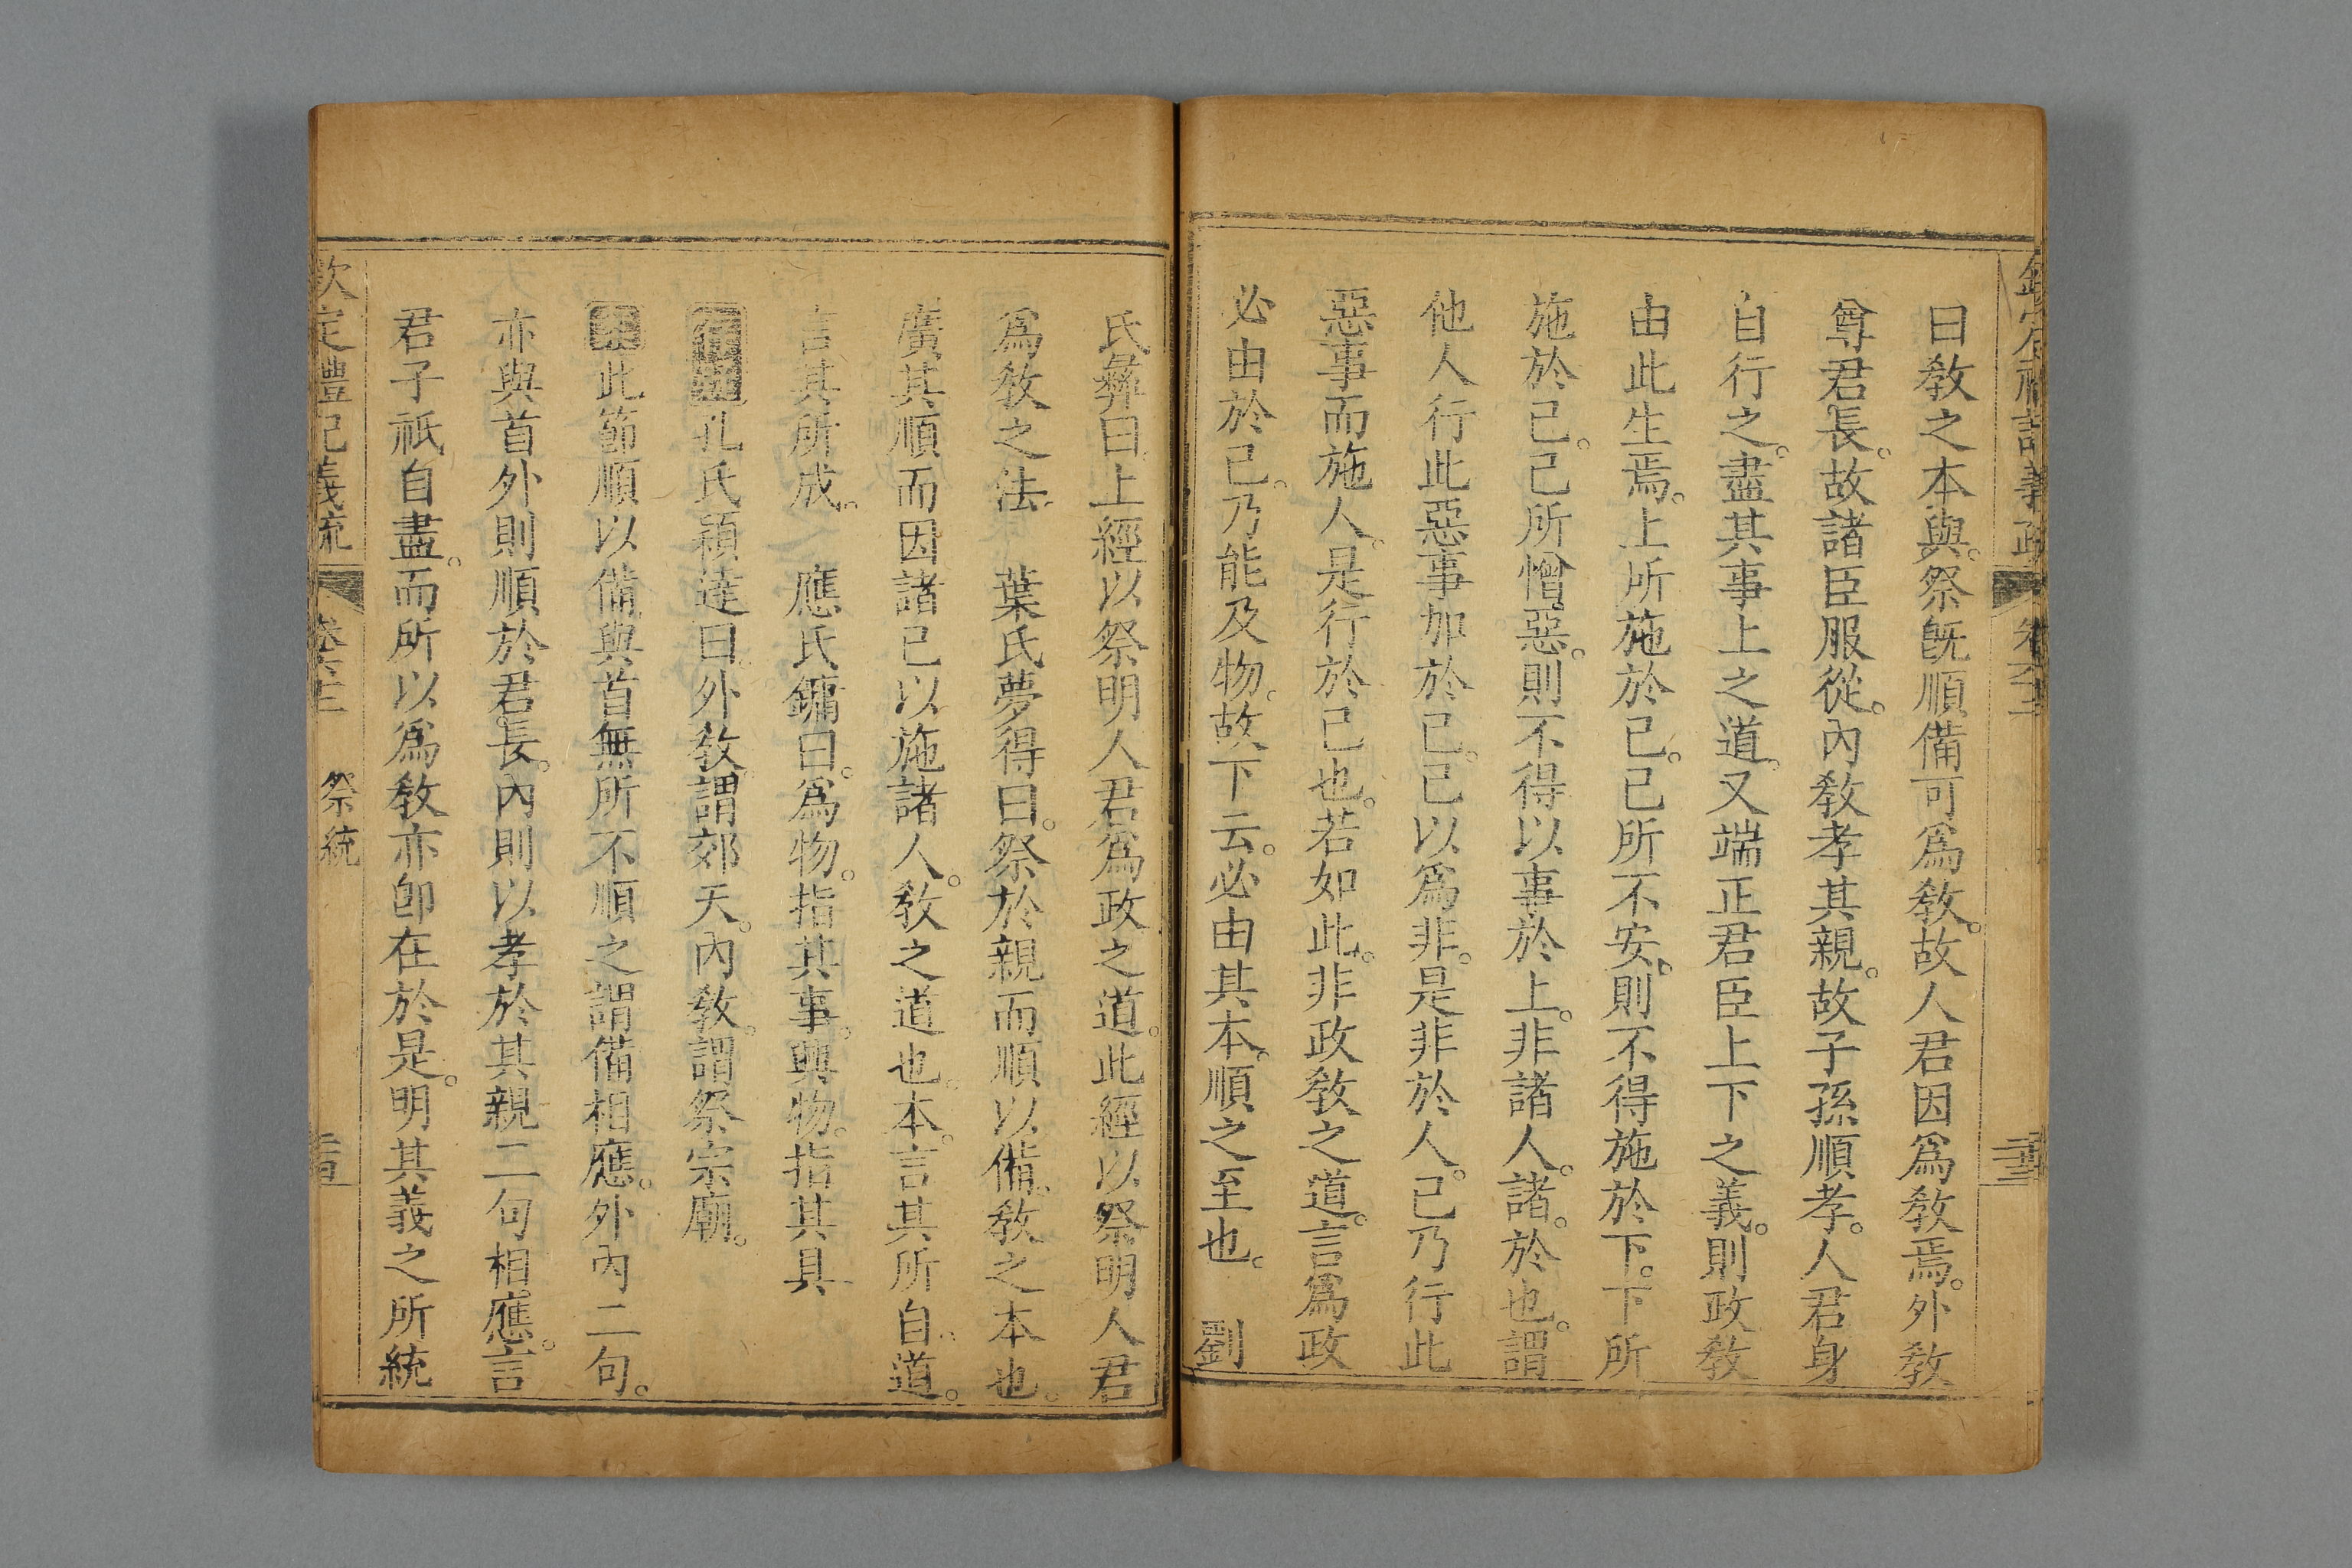 曰教之本與。祭旣順備可爲教。故人君因爲教焉。外教
尊君長。故諸臣服從。內教孝其親。故子孫順孝。人君身
自行之。盡其事上之道。又端正君臣上下之義。則政教
由此生焉。上所施於己。己所不安。則不得施於下。下所
施於己。己所憎惡。則不得以事於上。非諸人。諸。於也。謂
他人行此惡事加於己。己以爲非。是非於人。己乃行此
惡事而施人。是行於己也。若如此。非政教之道。言爲政
必由於己。乃能及物。故下云。必由其本。順之至也。 劉
氏彝曰上經以祭明人君爲政之道。此經以祭明人君
爲教之法 葉氏夢得曰。祭於親而順以備。教之本也。
廣其順而因諸已以施諸人。教之道也。本。言其所自。道。
言其所成。 應氏鏞曰。爲物。指其事。興物。指其具
孔氏穎達曰。外教謂郊天。內教。謂祭宗廟。
案此節順以備與首無所不順之謂備相應。外內二句。
亦與首外則順於君長。內則以孝於其親二句相應。言
君子祇自盡。而所以爲教亦卽在於是。明其義之所統
欽定禮記義疏 卷六十三 祭統